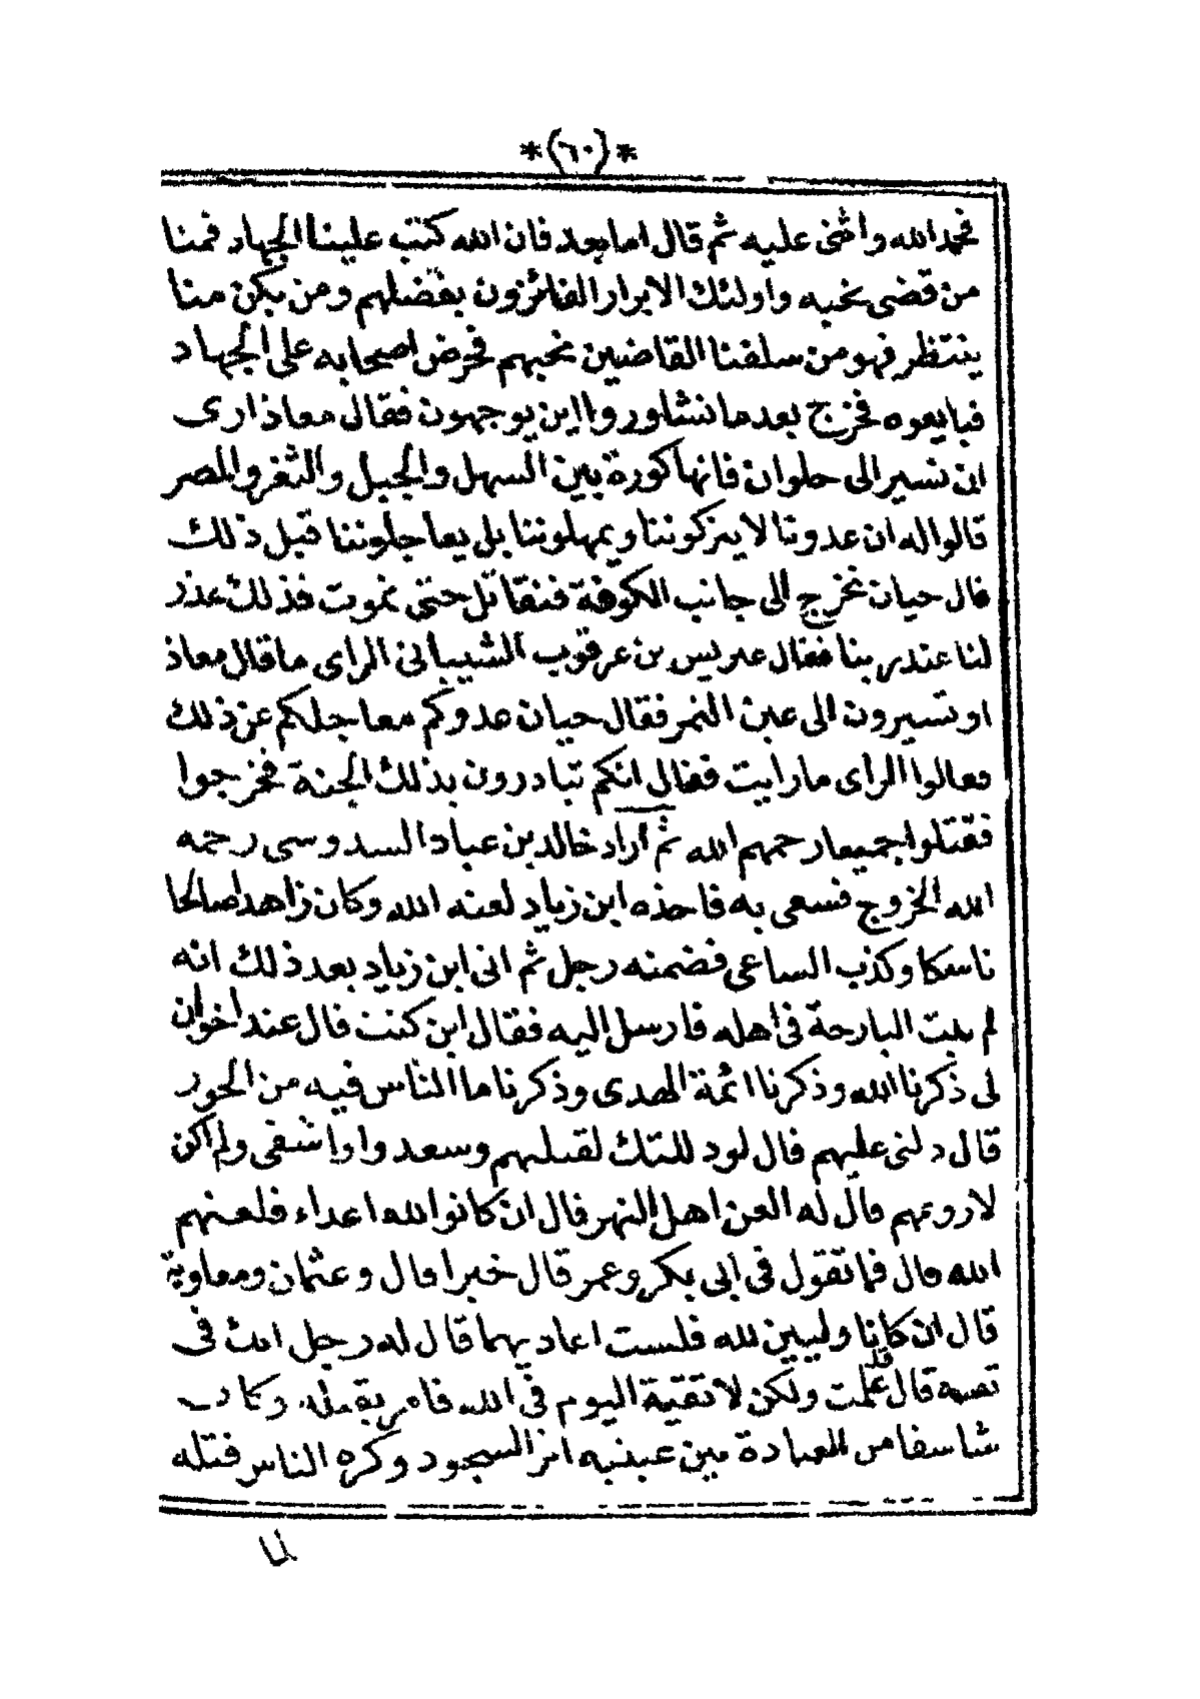 *(٦٠)*
فحمد الله واثنى عليه ثم قال اما بعد فان الله كتب علينا الجهاد فمنا
من قضى نحبه واولئك الابرار الفائزون بفضلهم ومن يكن منا
ينتظر فهو من سلفنا القاضين نحبهم فحرض اصحابه على الجهاد
فبايعوه فخرج بعد ما تشاوروا اين يوجهون فقال معاذ ارى
ان تسير الى حلوان فانها كورة بين السهل والجبل والثغر والمصر
قالوا له ان عدونا لا يتركوننا ويمهلوننا بل يعاجلوننا قبل ذلك
قال حيان نخرج الى جانب الكوفة فنقاتل حتى نموت فذلك عذر
لنا عند ربنا فقال عتريس بن عرقوب الشيباني الراى ما قال معاذ
او تسيرون الى عين النمر فقال حيان عدوكم معاجلكم عن ذلك
فقالوا الراى ما رايت فقال انكم تبادرون بذلك الجنة فخرجوا
فقتلوا جميعا رحمهم الله ثم اراد خالد بن عباد السدوسى رحمه
الله الخروج فسعى به فاخذه ابن زياد لعنه الله وكان زاهدا صالحا
ناسكا وكذب الساعى فضمنه رجل ثم اتى ابن زياد بعد ذلك انه
لم يبت البارحة فى اهله فارسل اليه فقال اين كنت قال عند اخوان
لى ذكرنا الله وذكرنا ائمة الهدى وذكرنا ما الناس فيه من الجور
قال دلنى عليهم قال لود للتك لقتلهم وسعدوا واشقى ولم اكن
لاروعهم قال له العن اهل النهر قال ان كانوا لله اعداء فلعنهم
الله قال فما تقول فى ابى بكر وعمر قال خيرا قال وعثمان ومعاوية
قال ان كانا وليين لله فلست اعاديهما قال له رجل انك فى
تقية قال قد علمت ولكن لا تقية اليوم فى الله فامر بقتله وكان
شاسفا من العبادة بين عينيه اثر السجود وكره الناس قتله
لما